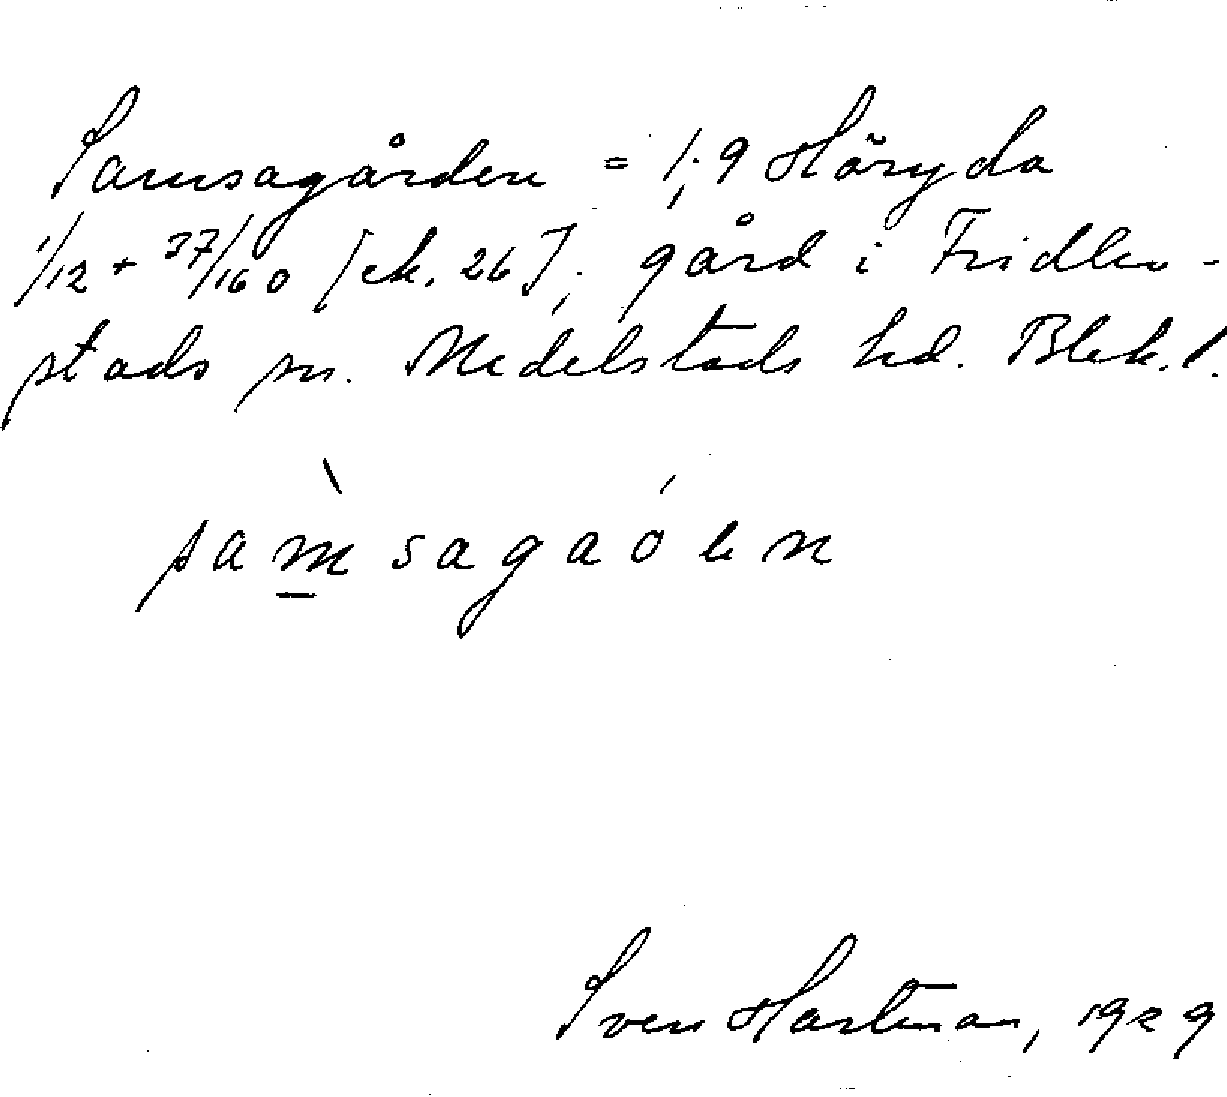 Samsagården = 1; 9 Häryda
1/12 + 37/160 [ek. 26]; gård i Fridlev-
stads sn. Medelstads hd. Blek. l.
sam̀sagaóen
Sven Hartman, 1929